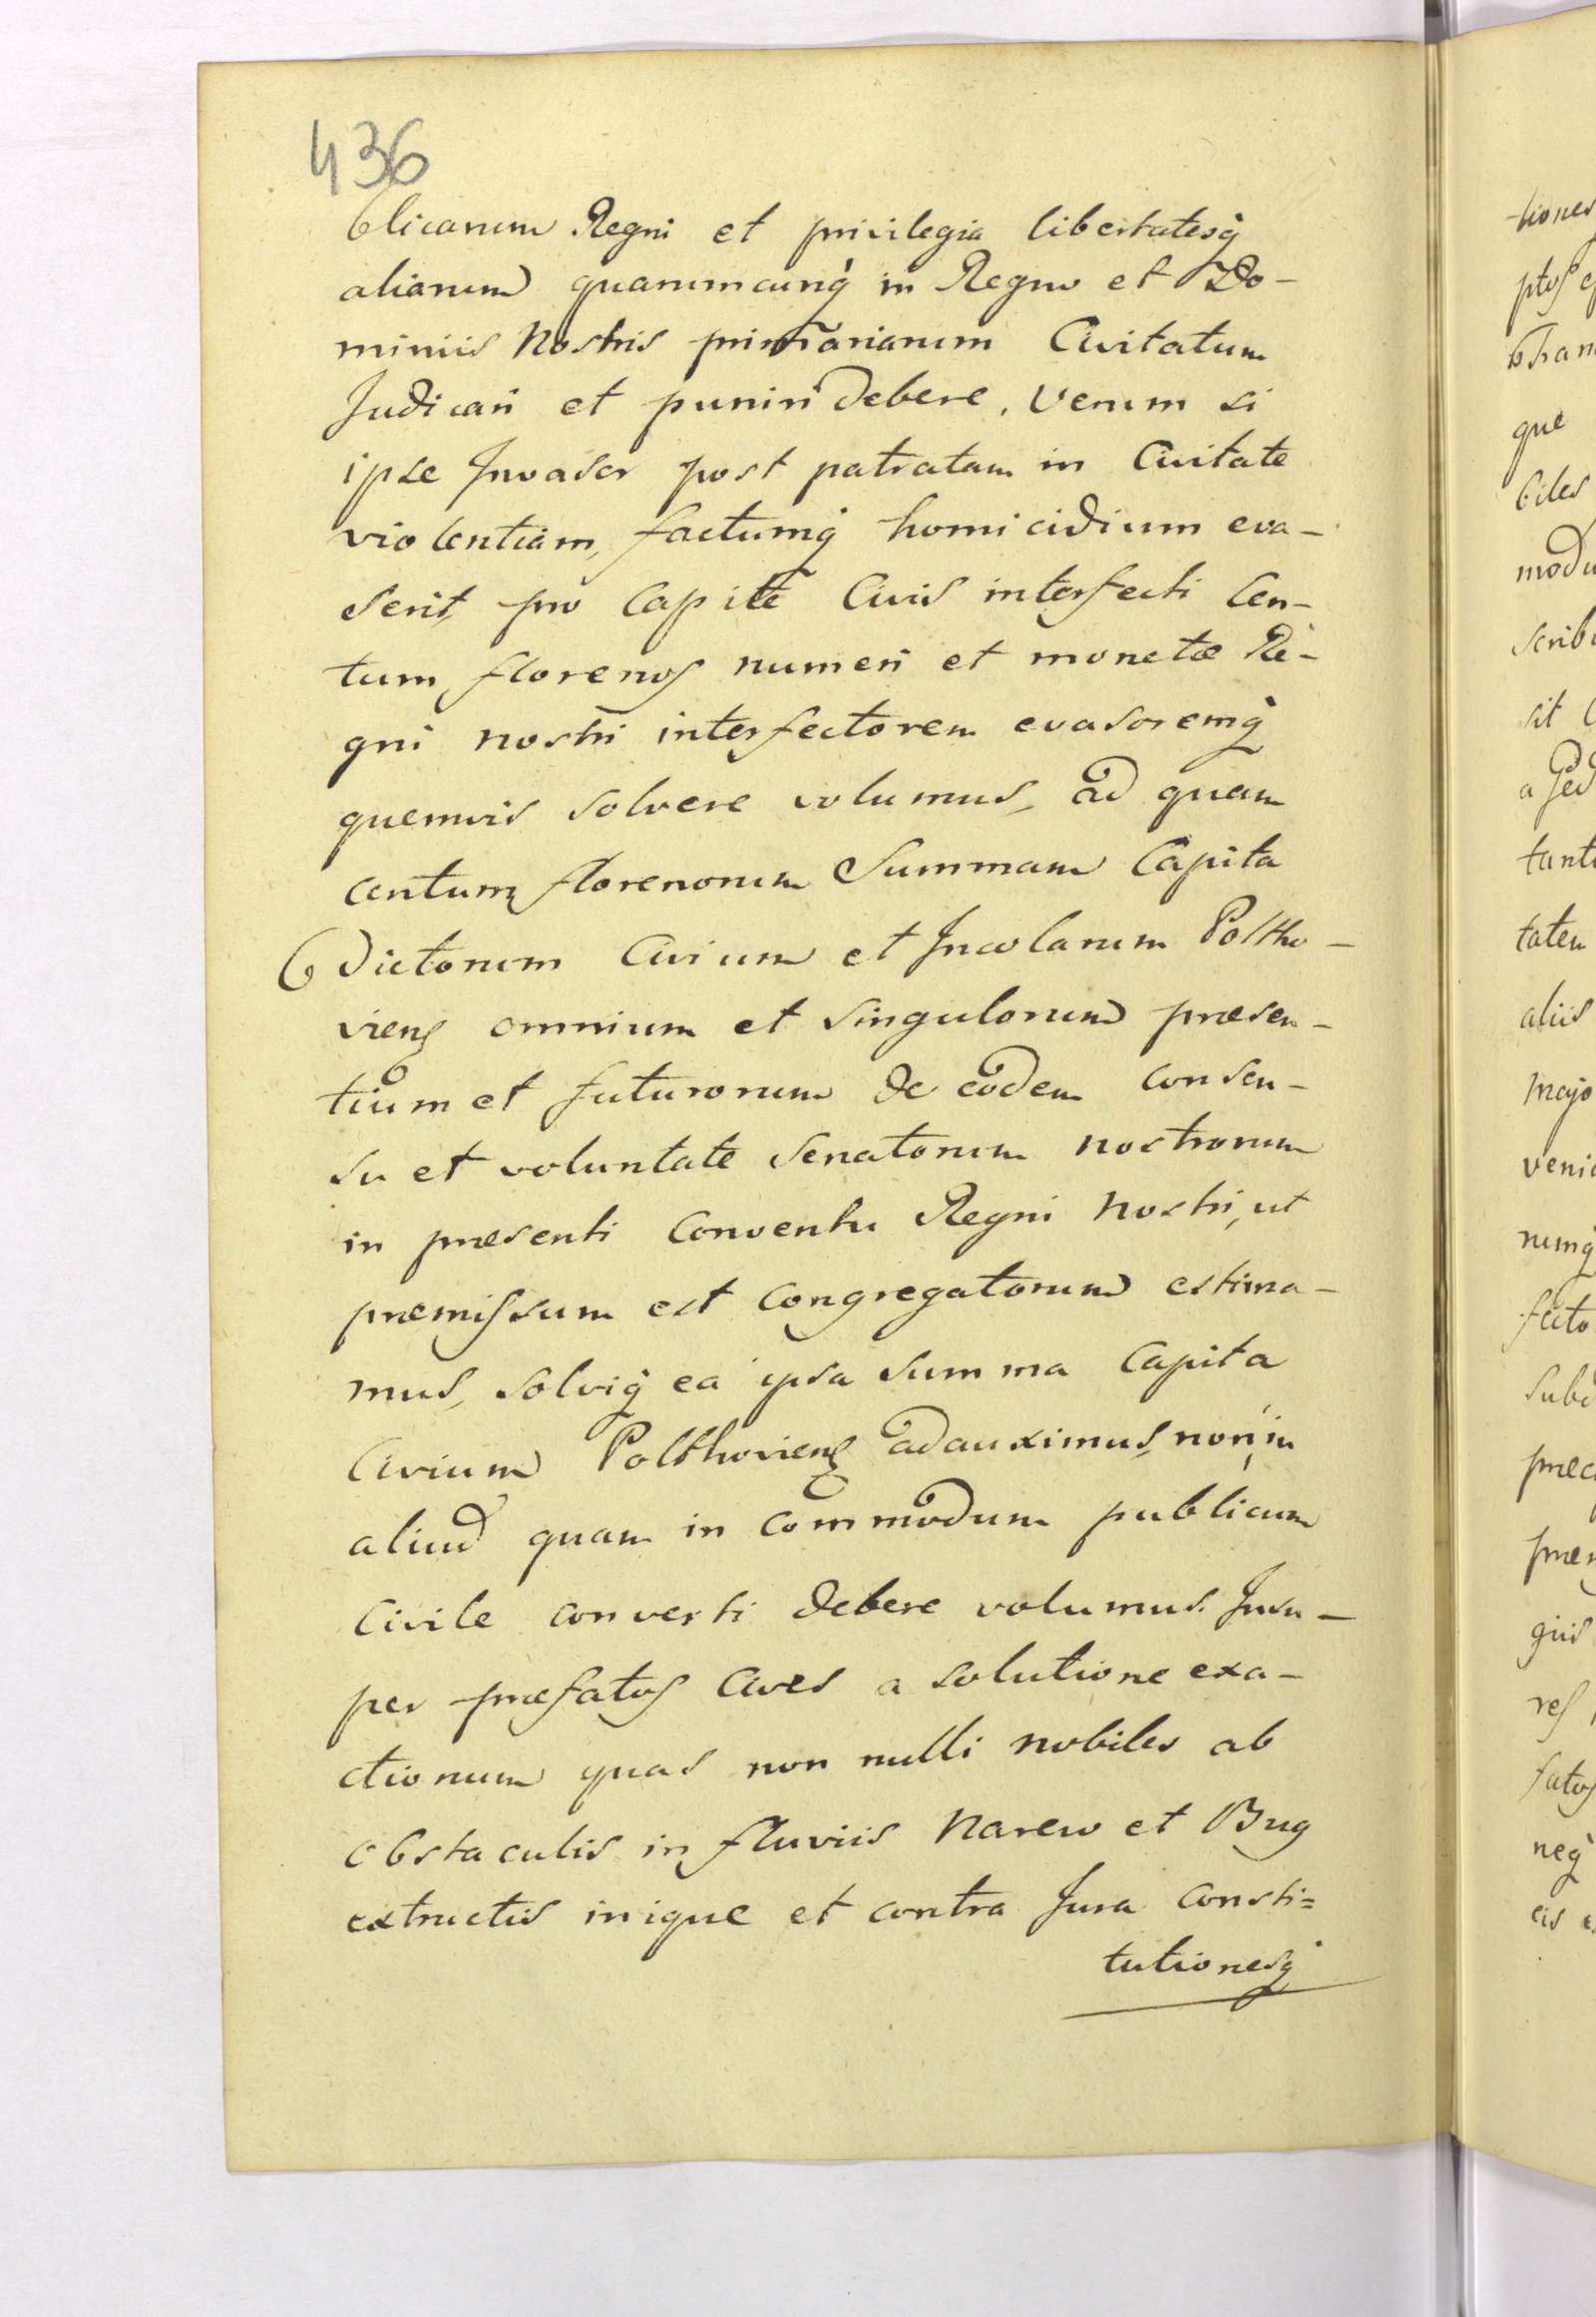 436
blicarum Regni et privilegia libertatesq́
aliarum quarumcunq́ in Regno et Do-
miniis Nostris primariarum Civitatum
Judicari et puniri debere. Verum si
ipse Invasor post patratam in Civitate
violentiam, factumq́ homicidium eva-
serit, pro Capite Civis interfecti Cen-
tum florenos numeri et monetæ Re-
gni nostri interfectorem evasoremq́
quemvis solvere volumus, ad quam
centum florenorum Summam Capita
Dictorum Civium et Incolarum Poltho-
viens omnium et singulorum præsen-
tium et futurorum de eodem consen-
su et voluntate Senatorum nostrorum
in præsenti Conventu Regni Nostri, ut
præmissum est Congregatorum estima-
mus, solviq́ ea ipsa summa Capita
Civium Polthoviens adauximus, non in
aliud quam in commodum publicum
Civile converti debere volumus. Insu-
per præfatos Cives a solutione exa-
ctionum quas non nulli nobiles ab
obstaculis in fluviis Narew et Bug
extructis inique et contra Jura Consti=
tutionesq́
tiones
que
biles
modu
scrib
sit
tant
taten
aliis
majo
veni
rumq́
fecto
Subd
præc
giis
res
fatos
neq́
eis